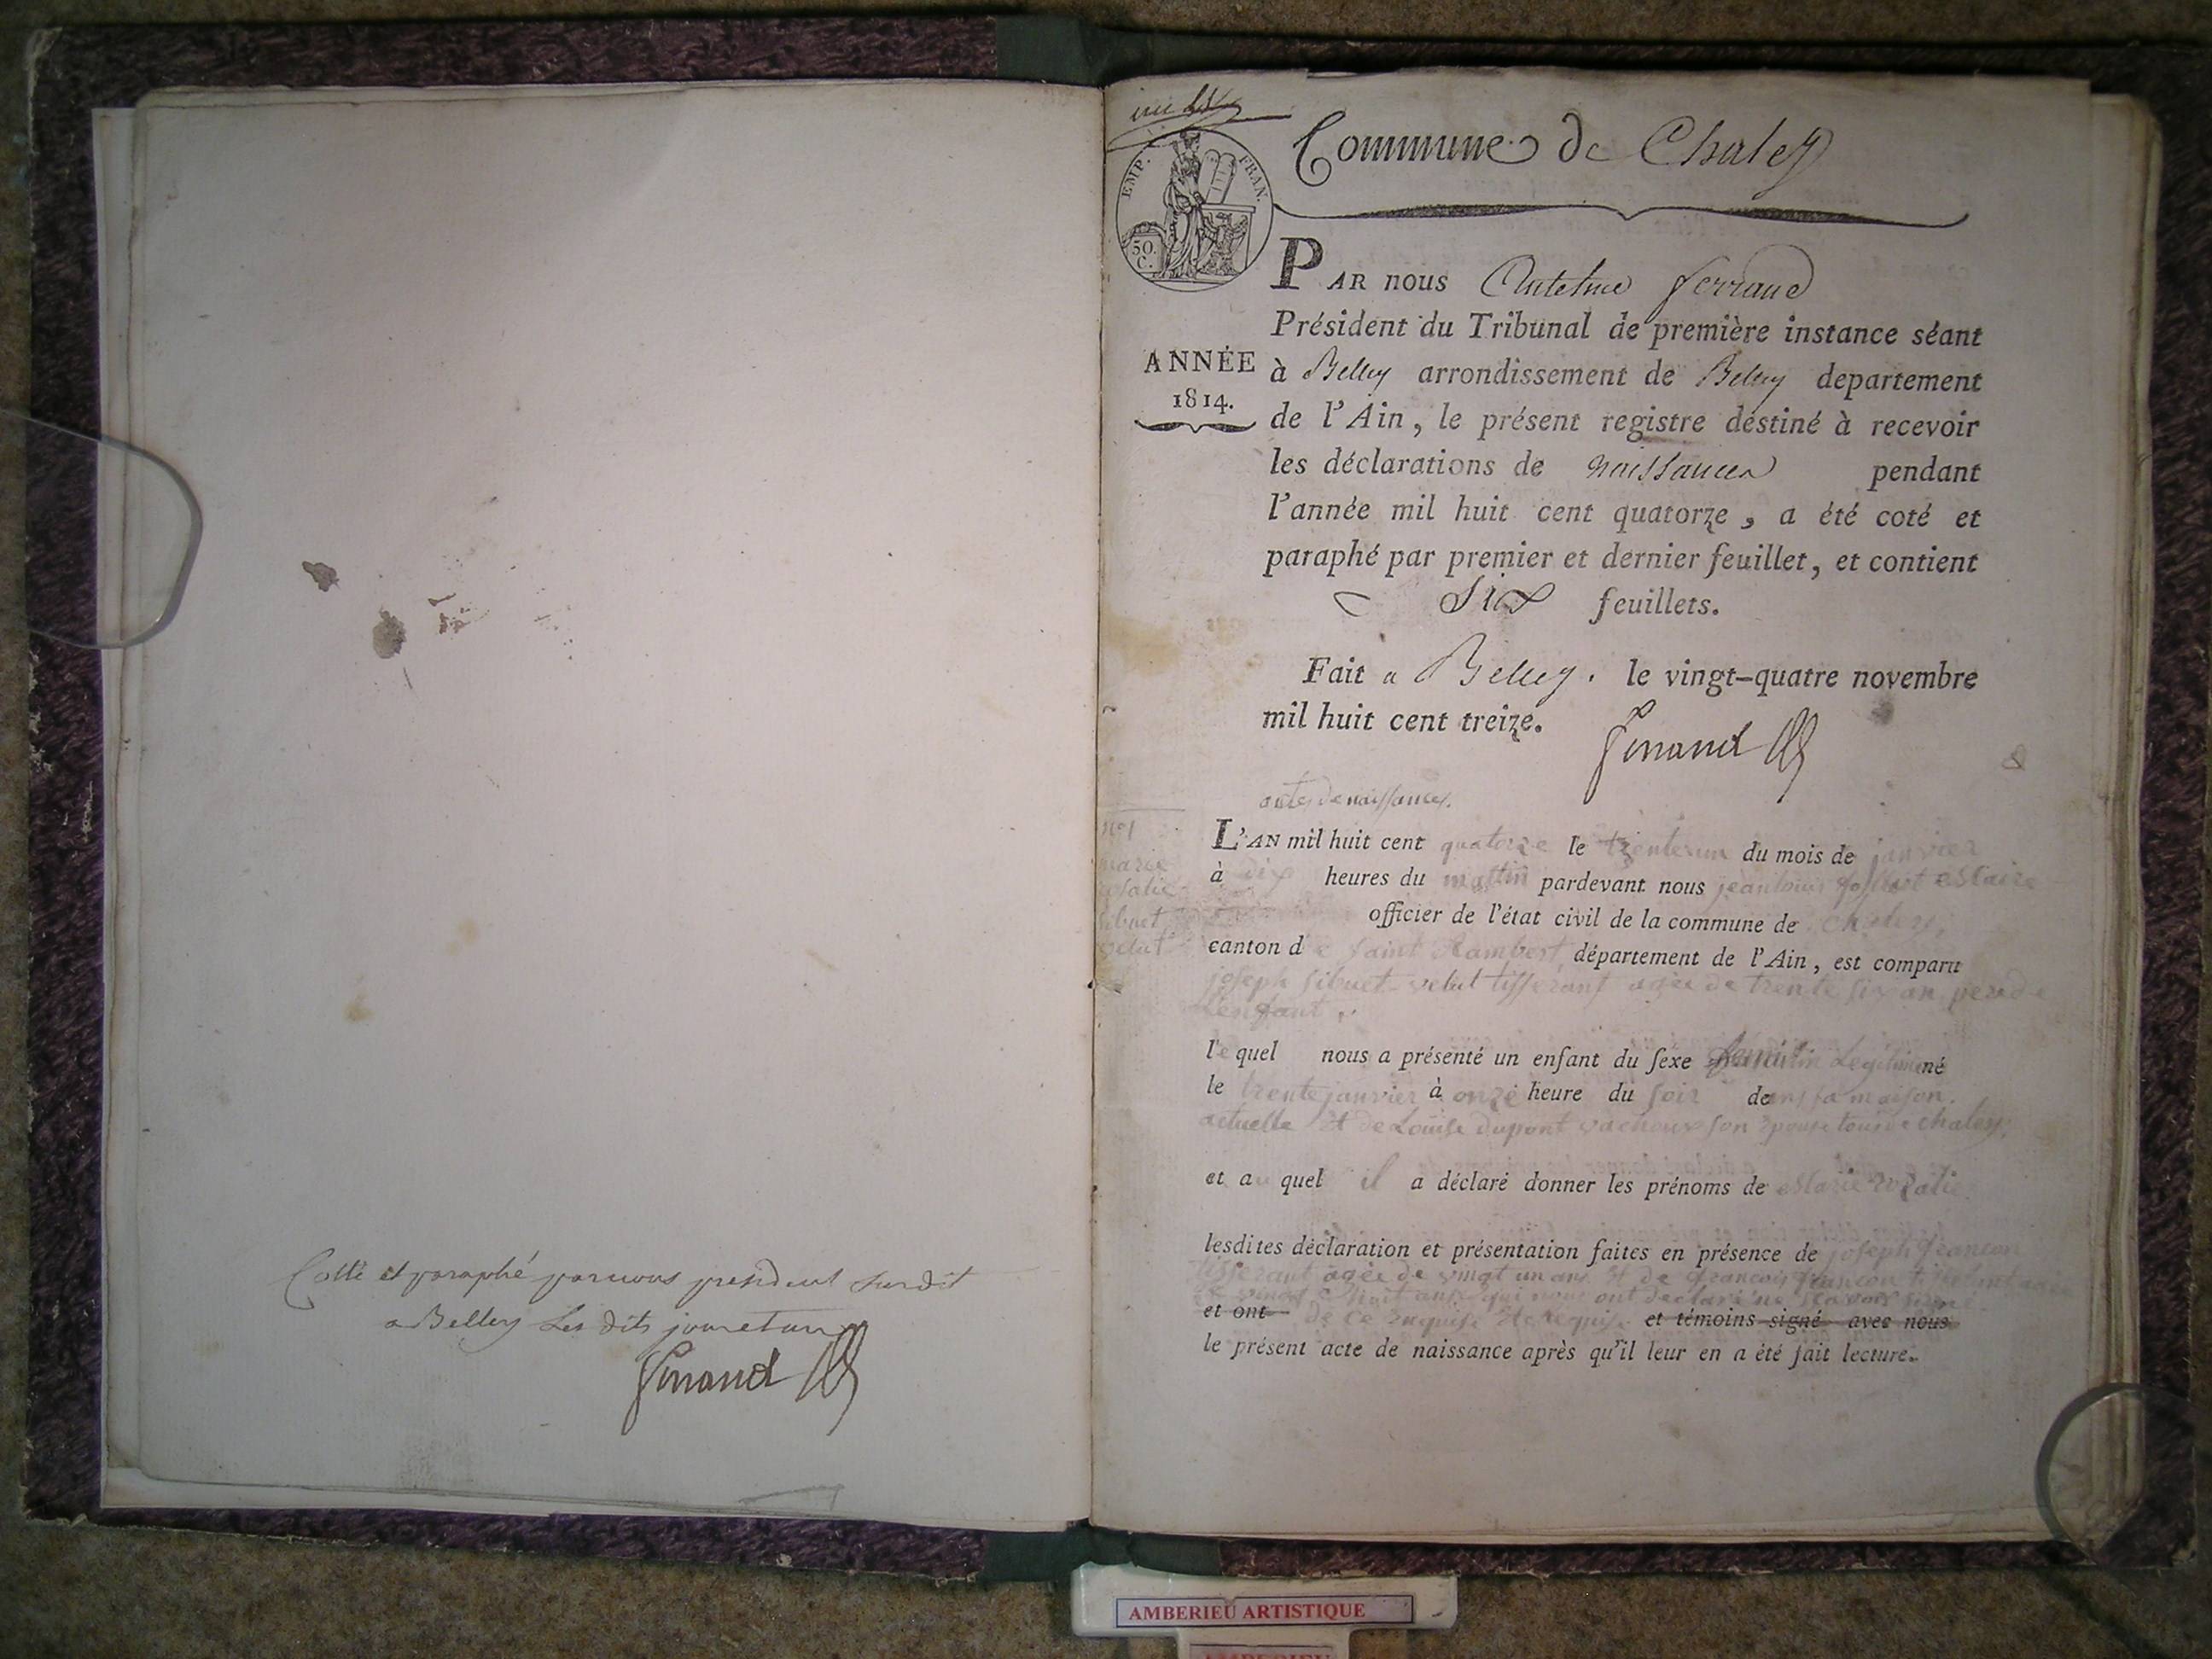 Cotté et paraphé par nous president surdit
a Belley Les dits jour et an
Ferrand
Commune de Chaley
EMP. FRAN.
50.
C.
PAR nous Antelme ferrand
Président du Tribunal de première instance séant
ANNÉE
1814.
à Belley arrondissement de Belley departement
de l'Ain, le présent registre destiné à recevoir
les déclarations de naissances pendant
l'année mil huit cent quatorze, a été coté et
paraphé par premier et dernier feuillet, et contient
Six feuillets.
Fait a Belley. le vingt-quatre novembre
mil huit cent treize.
Ferrand
actes de naissances.
n° 1
marie
sibuet
velut
L'AN mil huit cent quatorze le trente un du mois de janvier
à dix heures du mattin pardevant nous jean louis
officier de l'état civil de la commune de chaley,
canton de saint Rambert, département de l'Ain, est comparu
joseph sibuet velut tisserant agée de trente six an pere de
L'enfant.
lequel nous a présenté un enfant du sexe feminin Legitime né
le trente janvier à onze heure du soir dans sa maison.
actuelle Et de Louise dupont vachoux son Epouse tous de chaley.
et auquel il a déclaré donner les prénoms de Marie
lesdites déclaration et présentation faites en présence de joseph francon
tisserant agée de vingt un ans Et de francois francon
de vingt huit ans qui nous ont declaré ne scavoir signé
et ont de ce enquise Et requise et témoins signé avec nous
le présent acte de naissance après qu'il leur en a été fait lecture.
AMBERIEU ARTISTIQUE
AMBERIEU